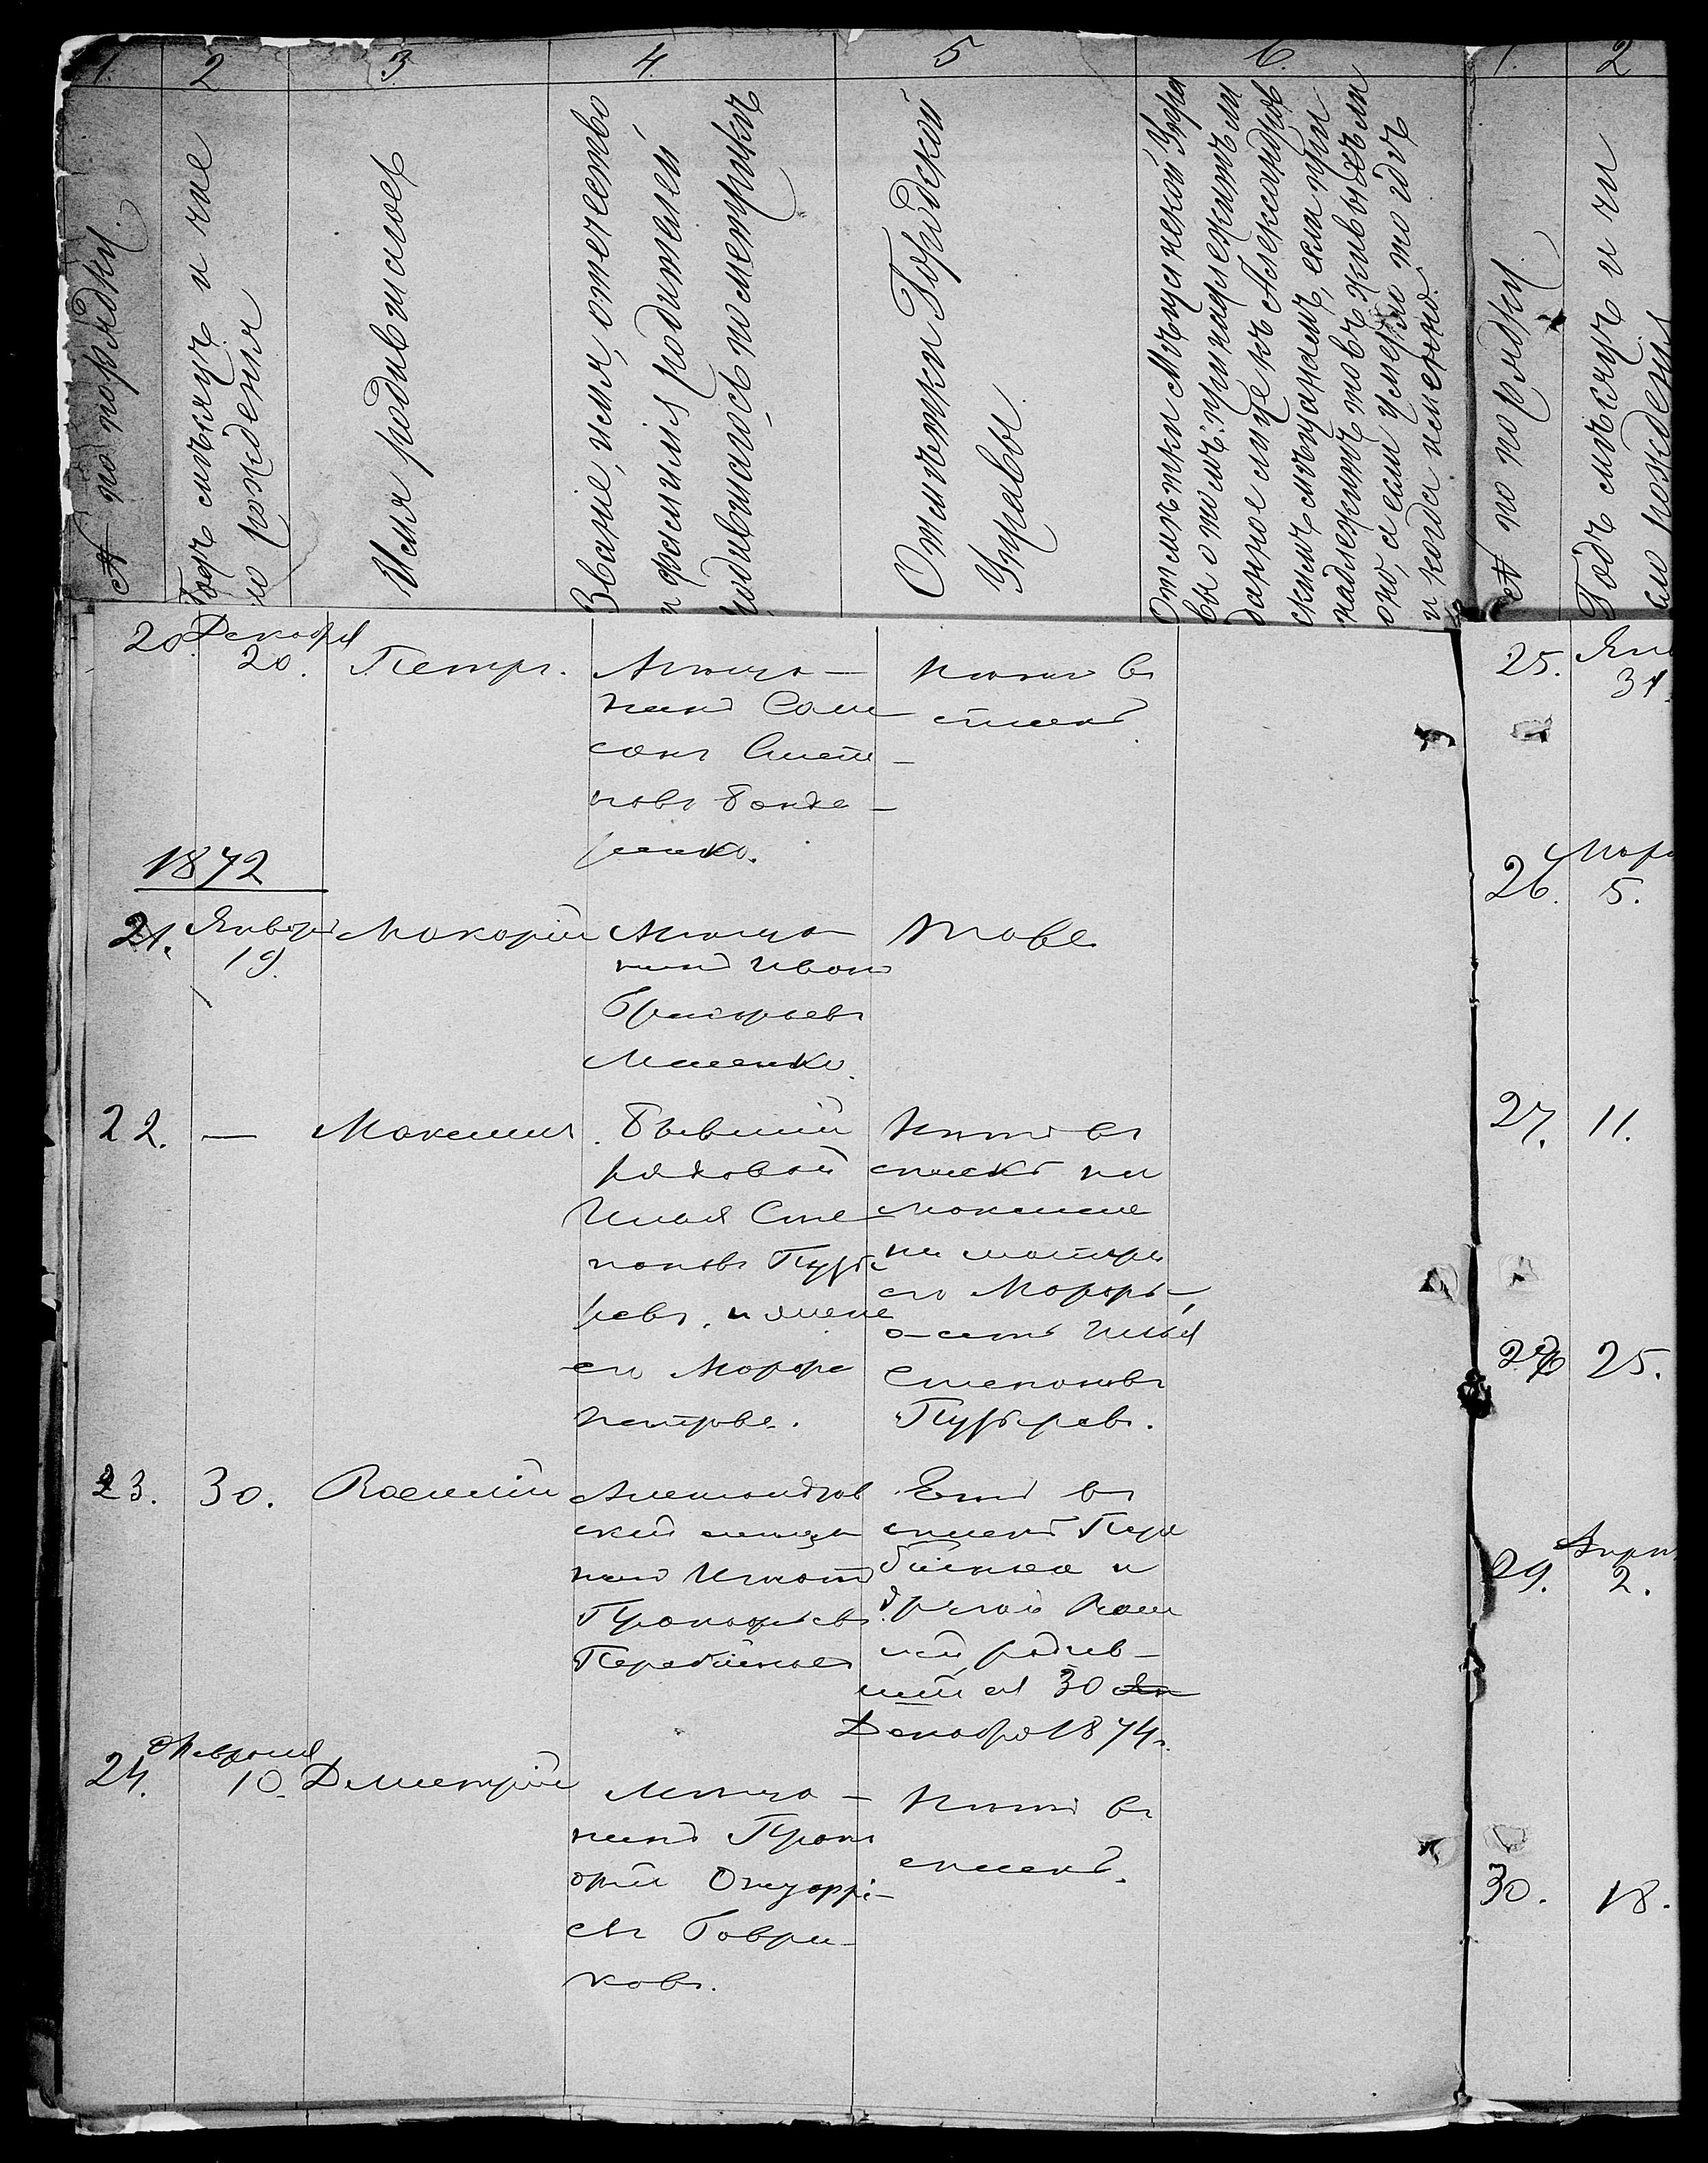 1. 2 3 4. 5 6. 1. 2
№ по порядку.
Годъ мѣсяцъ и чис
ло рожденія
Имя родившагося
Званіе, имя, отчество
и фамилія родителей
родившагося по метрикѣ
Отмѣтки Городской
Управы
Отмѣтки Мѣщанской Упра
вы о томъ: принадлежитъ ли
данное лице къ Александров
скимъ мѣщанамъ, если при
надлежитъ то въ живыхъ ли
оно, а если умерло то гдѣ
и когда именно.
№ по порядку
Годъ мѣсяцъ и чи
сло рожденія
20. Декабря
20.
Петръ.
Мѣща-
нинъ Сам
сонъ
новъ Бонда-
ренко.
Нѣтъ въ
спискѣ.
1872
21. Января
19.
Макарій
Мѣща
нинъ Иванъ
Григорьевъ
Тоже
22. — Максимъ.
Бывшій
рядовой
Илья Сте
пановъ Пузы
ревъ, и жена
его Марфа
Петрова.
Нѣтъ въ
спискѣ ни
Максима
ни матери
его Марфы,
а есть Илья
Степановъ
Пузыревъ.
23. 30. Василій
Александров
скій мѣща
нинъ Игнатъ
Прокофьевъ
Перебійносъ
Есть въ
спискѣ Пере
бійноса и
другой Васи
лій родив-
шійся 30
Декабря 1874.
24. Февраля
10. Димитрій
Мѣща-
нинъ Прок
офій Онуфрі-
евъ Гаври-
ковъ.
Нѣтъ въ
спискѣ.
25. Янв
31.
26. Мар
5.
27. 11.
28 25.
29. Апр
2.
30. 18.